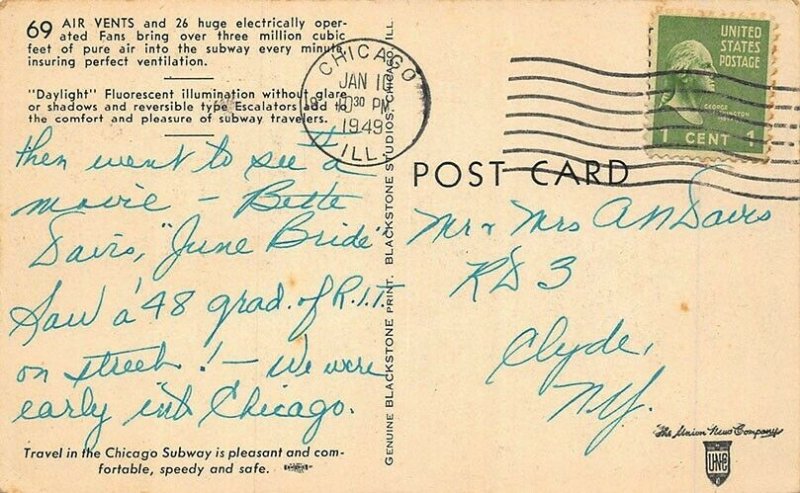 69 AIR VENTS and 26 huge electrically oper-
ated Fans bring over three million cubic
feet of pure air into the subway every minute,
insuring perfect ventilation.
"Daylight" Fluorescent illumination without glare
or shadows and reversible type Escalators add to
the comfort and pleasure of subway travelers.
II
then went to see a
movie - Bette
Davis, "June Bride"
Saw a '48 grad. of R.I.T.
on street! - We were
early into Chicago.
Travel in the Chicago Subway is pleasant and com-
fortable, speedy and safe.
GENUINE BLACKSTONE PRINT. BLACKSTONE STUDIOS, CHICAGO, ILL.
CHICAGO
JAN
30 PM
1949
ILL.
UNITED
STATES
POSTAGE
GEORGE
WASHINGTON
1 CENT 1
POST CARD
Mr + Mrs A N Davis
RD 3
Clyde,
NY.
The Union News Company
UNC